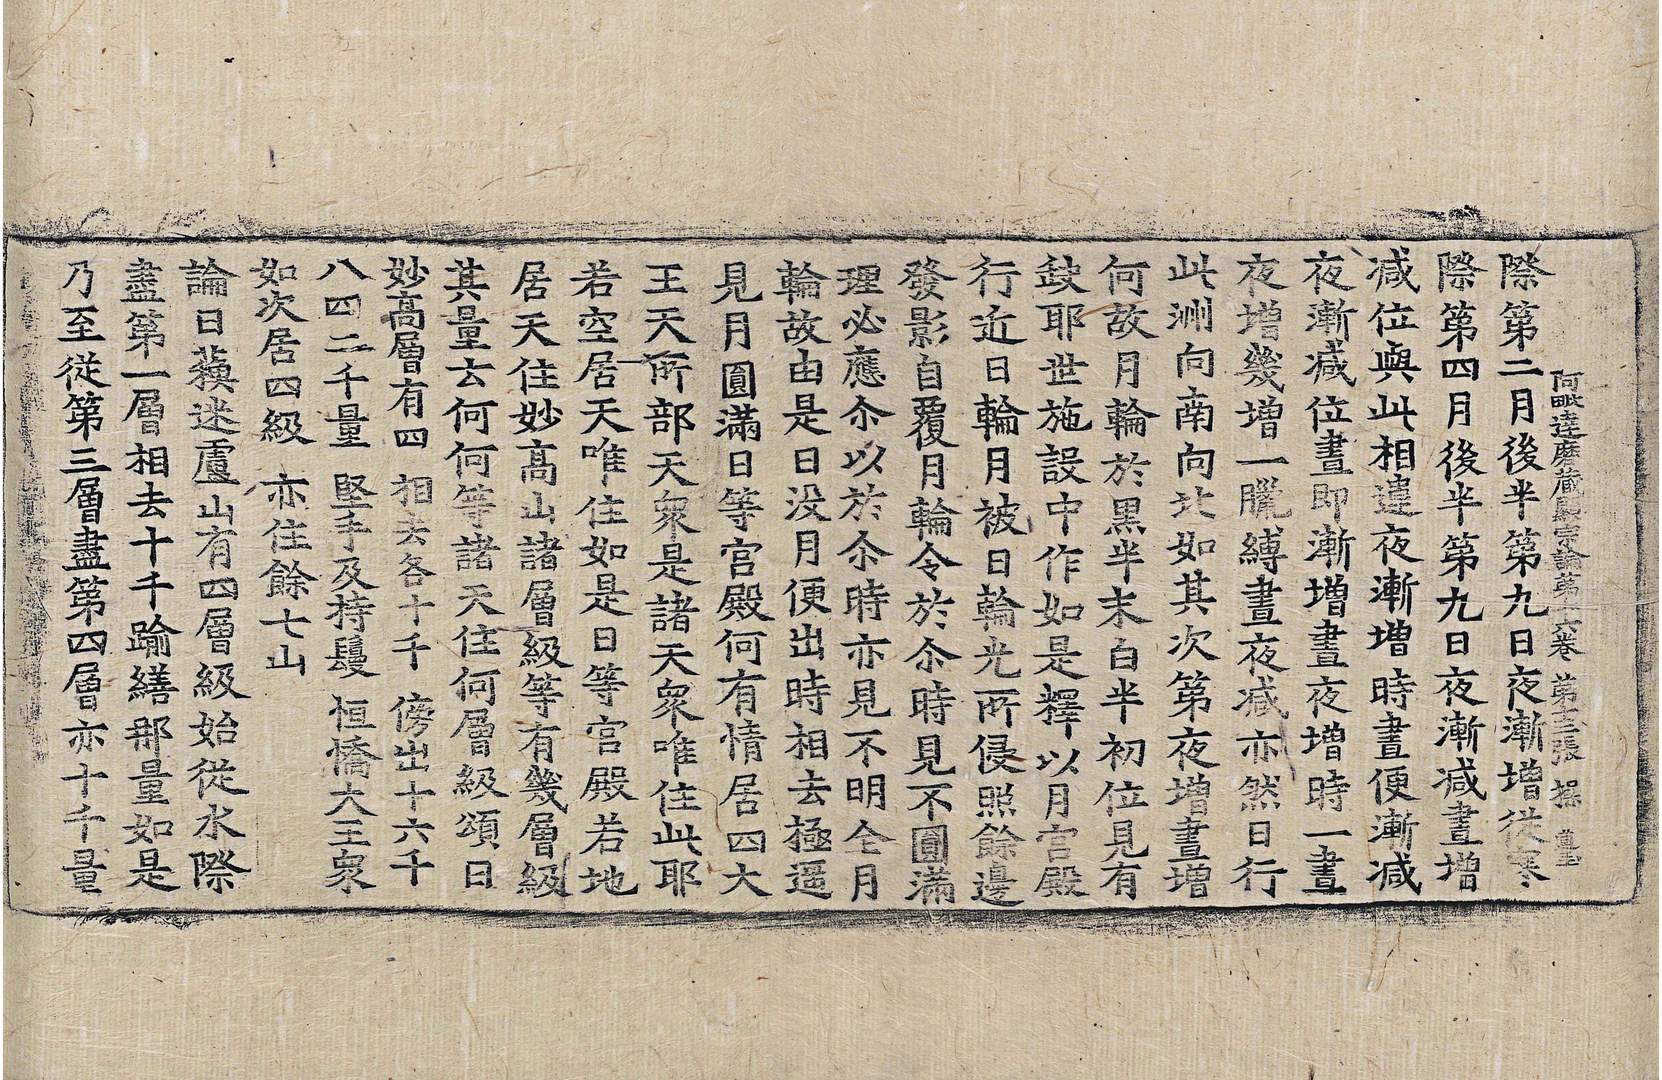 阿毗達磨藏顯宗論第十六卷 第三張 操
際第二月後半第九日夜漸增從寒
際第四月後半第九日夜漸減晝增
減位與此相違夜漸增時晝便漸減
夜漸減位晝即漸增晝夜增時一晝
夜增幾增一臘縛晝夜減亦然日行
此洲向南向北如其次第夜增晝增
何故月輪於黑半末白半初位見有
缺耶世施設中作如是釋以月宮殿
行近日輪月被日輪光所侵照餘邊
發影自覆月輪令於尒時見不圓滿
理必應尒以於尒時亦見不明全月
輪故由是日没月便出時相去極遥
見月圓滿日等宮殿何有情居四大
王天所部天衆是諸天衆唯住此耶
若空居天唯住如是日等宮殿若地
居天住妙高山諸層級等有幾層級
其量云何何等諸天住何層級頌曰
妙高層有四 相去各十千 傍出十六千
八四二千量 堅手及持鬘 恒憍大王衆
如次居四級 亦住餘七山
論曰蘇迷盧山有四層級始從水際
盡第一層相去十千踰繕那量如是
乃至從第三層盡第四層亦十千量